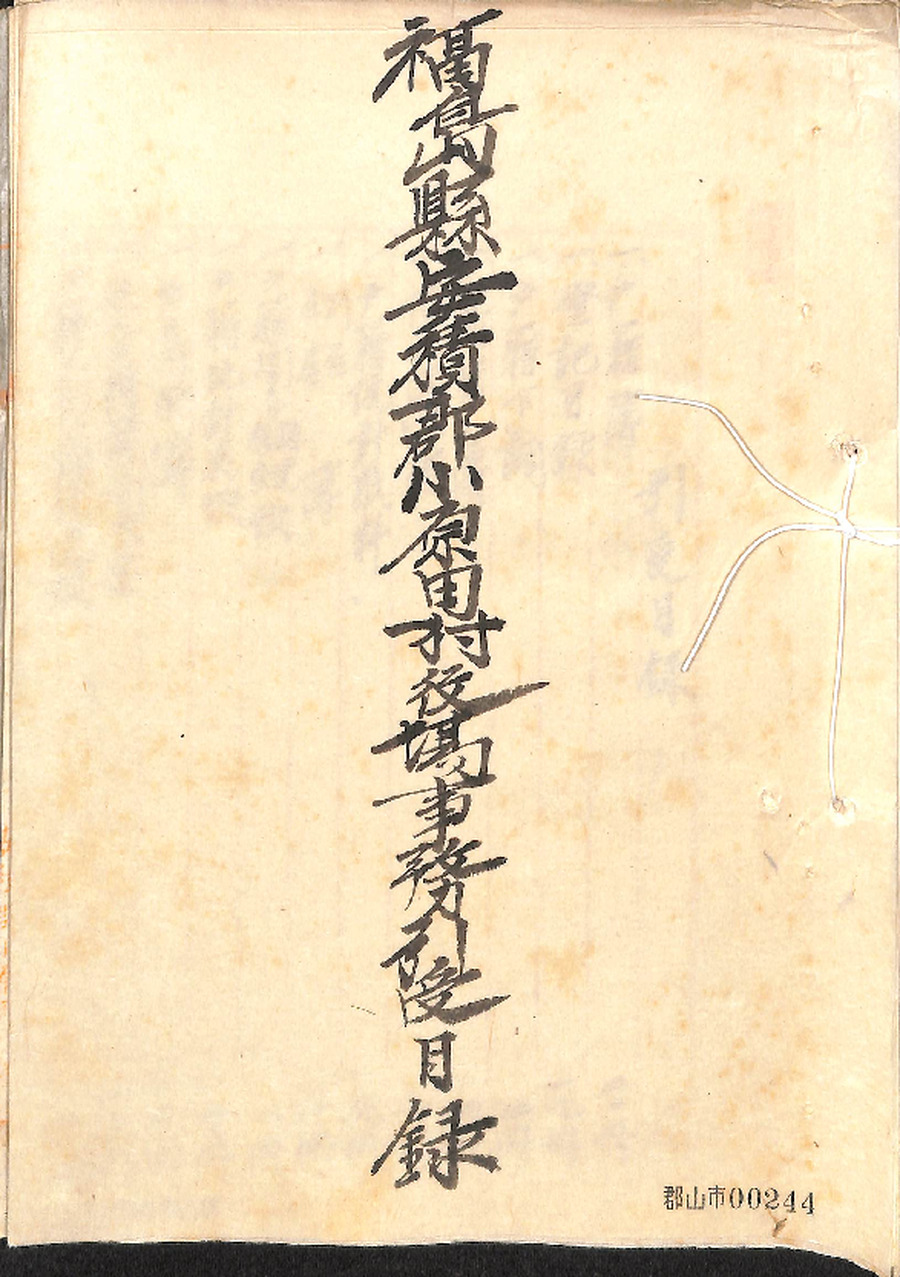 福島縣安積郡小原田村役場事務引受目録
郡山市00244